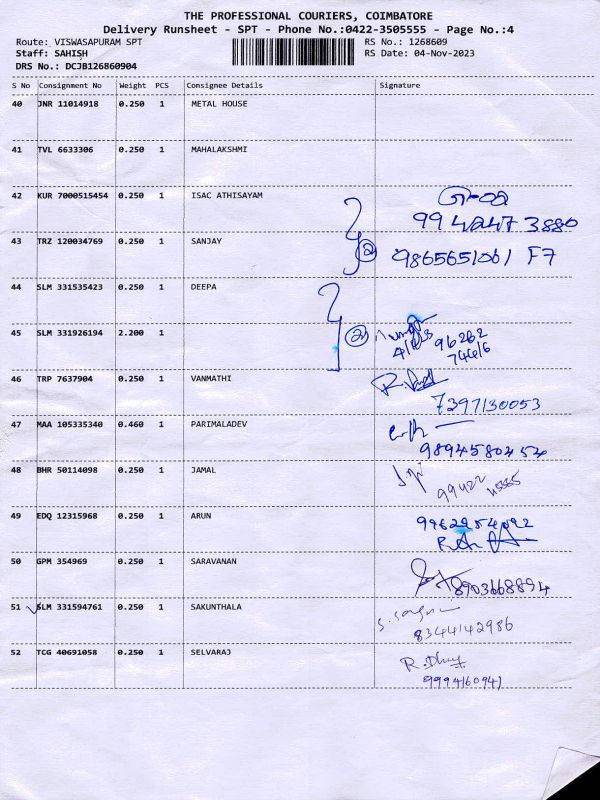 THE PROFESSIONAL COURIERS, COIMBATORE
Delivery Runsheet - SPT - Phone No.:0422-3505555 - Page No.:4
Route: VISWASAPURAM SPT RS No.: 1268609
Staff: SAHISH RS Date: 04-Nov-2023
DRS No.: DCJB126860904
S No Consignment No Weight PCS Consignee Details Signature
40 JNR 11014918 0.250 1 METAL HOUSE
41 TVL 6633306 0.250 1 MAHALAKSHMI
42 KUR 7000515454 0.250 1 ISAC ATHISAYAM
9942473880
43 TRZ 120034769 0.250 1 SANJAY
② 9865651061 F7
44 SLM 331535423 0.250 1 DEEPA
45 SLM 331926194 2.200 1
② 4/11/23 96262
74616
46 TRP 7637904 0.250 1 VANMATHI
7397130053
47 MAA 105335340 0.460 1 PARIMALADEV
9894580454
48 BHR 50114098 0.250 1 JAMAL
99422 45555
49 EDQ 12315968 0.250 1 ARUN
9962954092
50 GPM 354969 0.250 1 SARAVANAN
8903668894
51 SLM 331594761 0.250 1 SAKUNTHALA
8344142986
52 TCG 40691058 0.250 1 SELVARAJ
9994160941